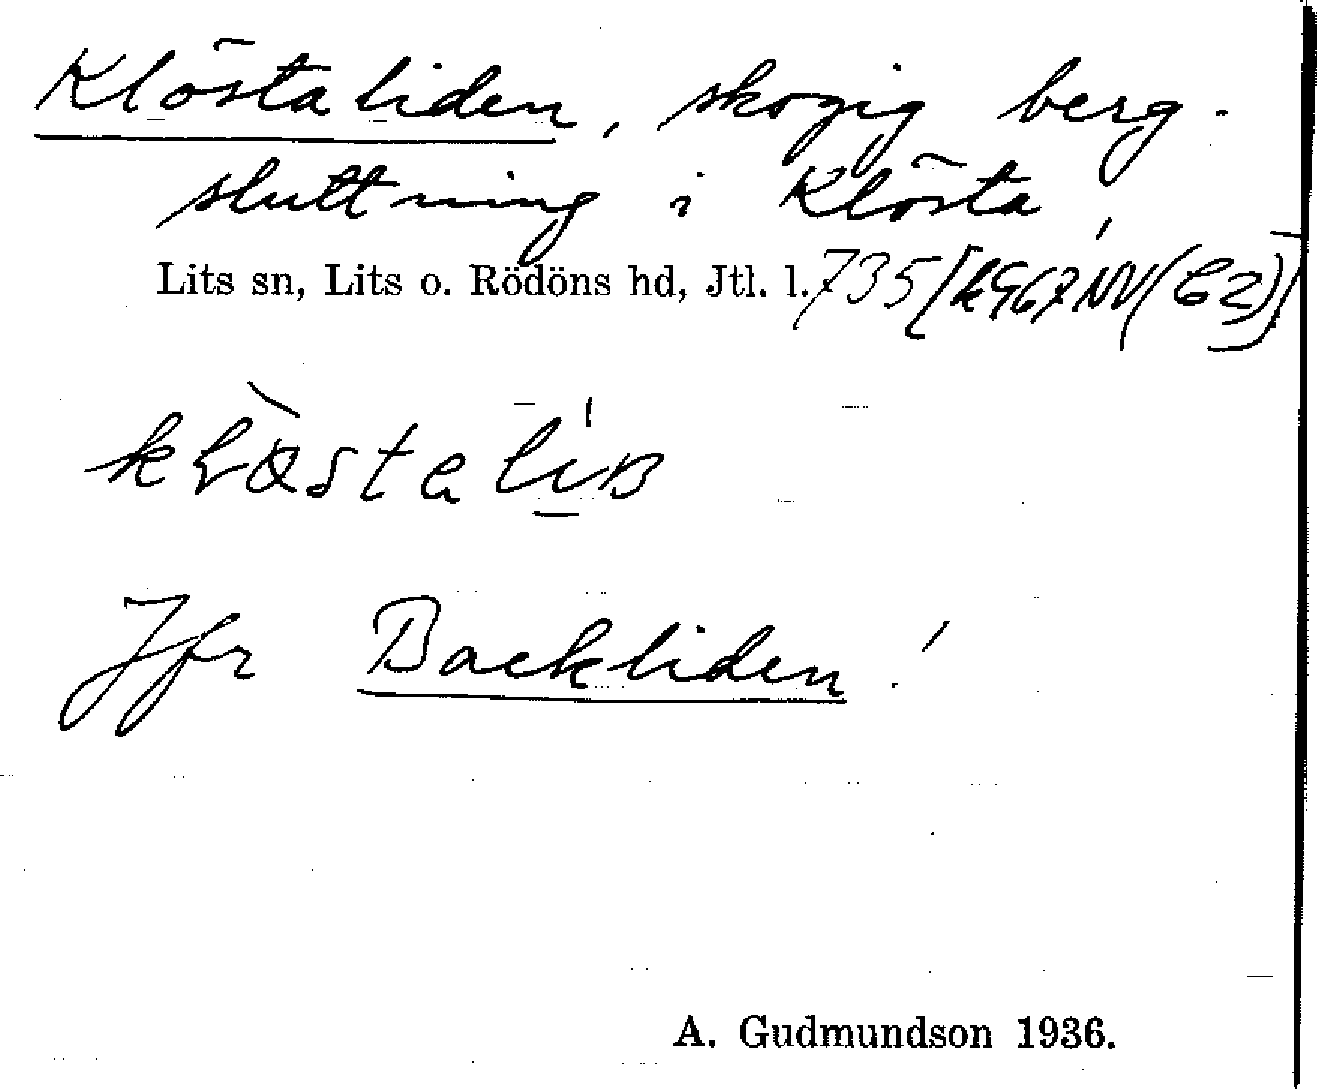 Klöstaliden, skogig berg-
sluttning i Klösta,
Lits sn, Lits o. Rödöns hd, Jtl. l. 735
Jfr Backliden!
A. Gudmundson 1936.